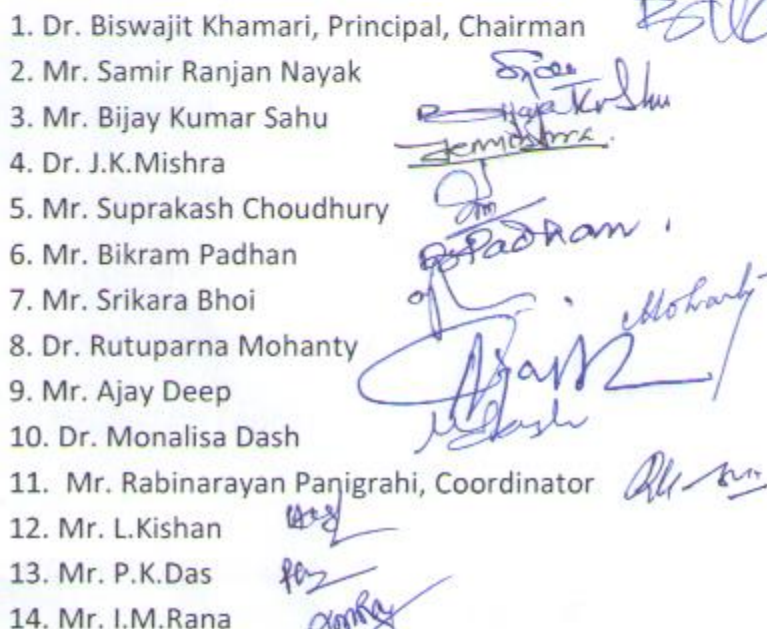 1. Dr. Biswajit Khamari, Principal, Chairman
2. Mr. Samir Ranjan Nayak
3. Mr. Bijay Kumar Sahu
4. Dr. J.K.Mishra
5. Mr. Suprakash Choudhury
6. Mr. Bikram Padhan
Padhan.
7. Mr. Srikara Bhoi
8. Dr. Rutuparna Mohanty
Mohanty
9. Mr. Ajay Deep
10. Dr. Monalisa Dash
MDash
11. Mr. Rabinarayan Panigrahi, Coordinator
12. Mr. L.Kishan
13. Mr. P.K.Das
14. Mr. I.M.Rana